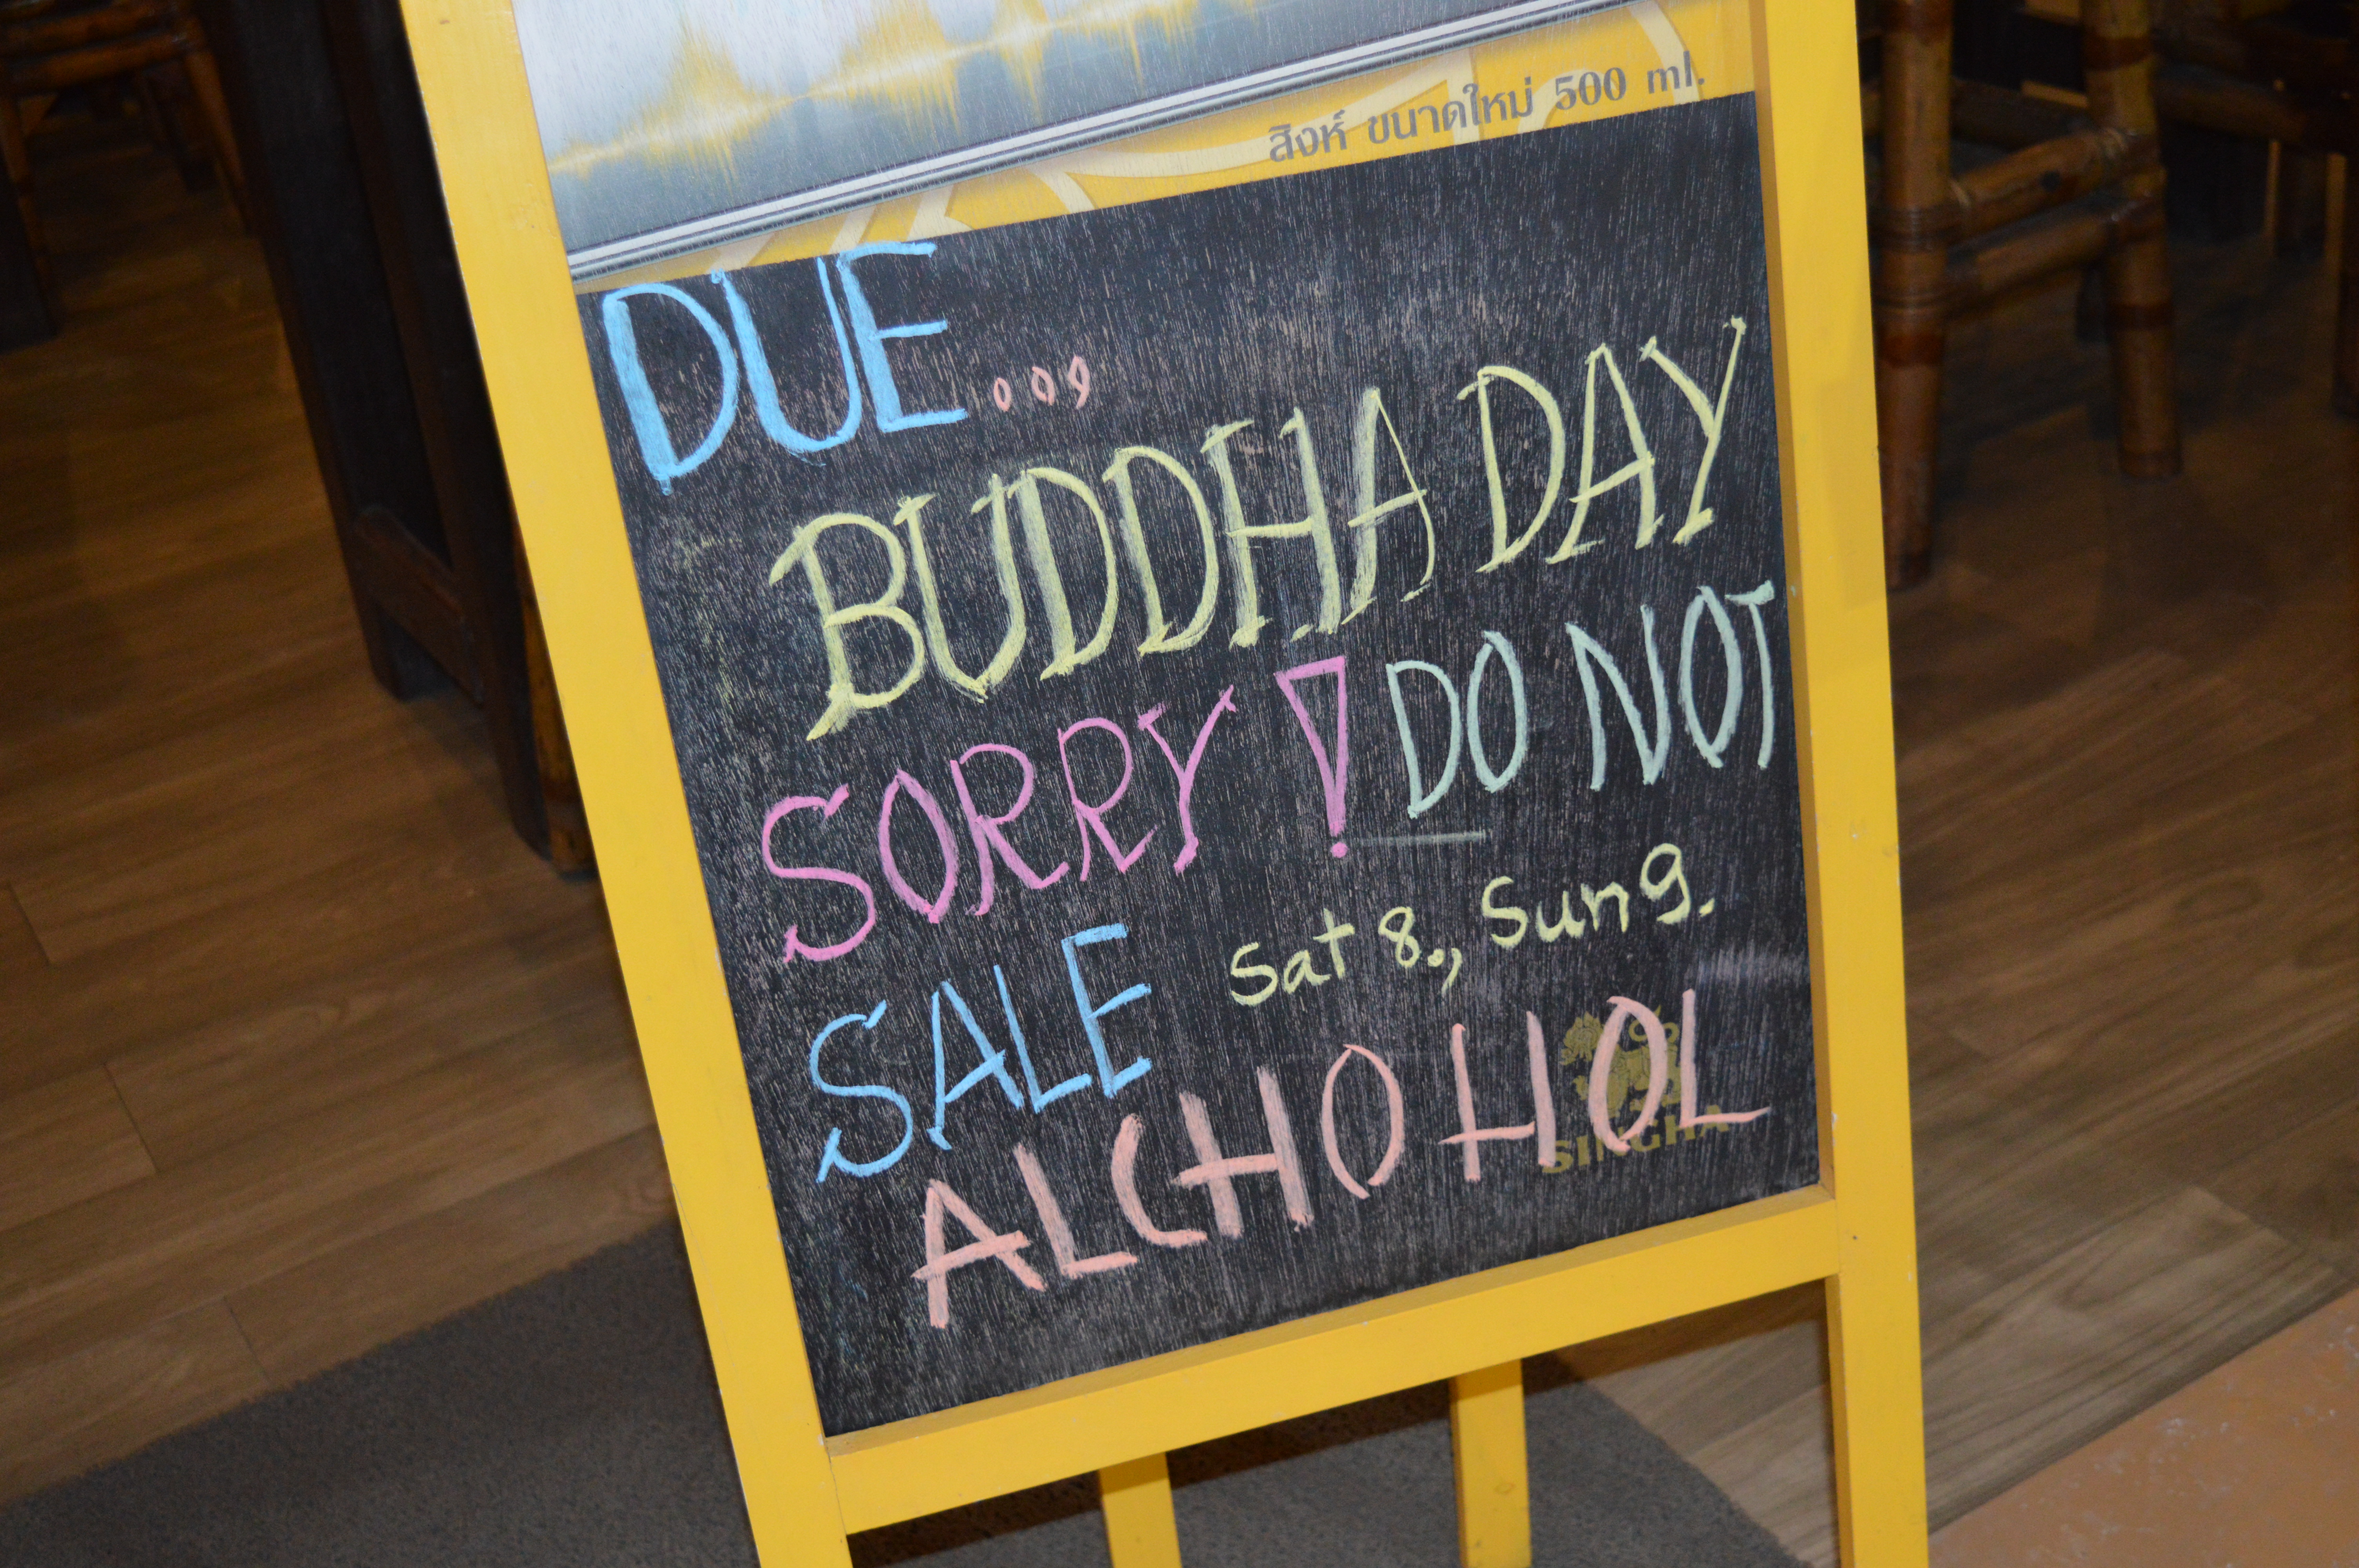 สิงห์ ขนาดใหม่ 500 ml.
DUE...
BUDDHA DAY
SORRY! DO NOT
SALE Sat 8., Sun 9.
ALCHOHOL
SINGHA